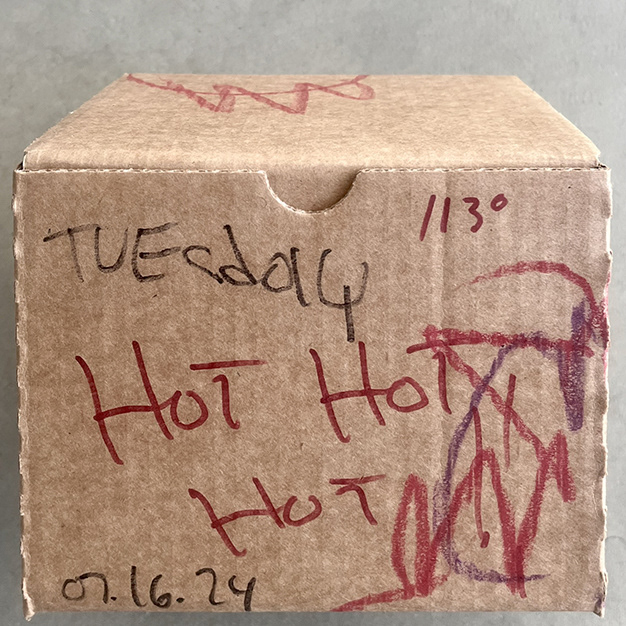 113°
TUEsday
HOT HOT
HOT
07.16.24